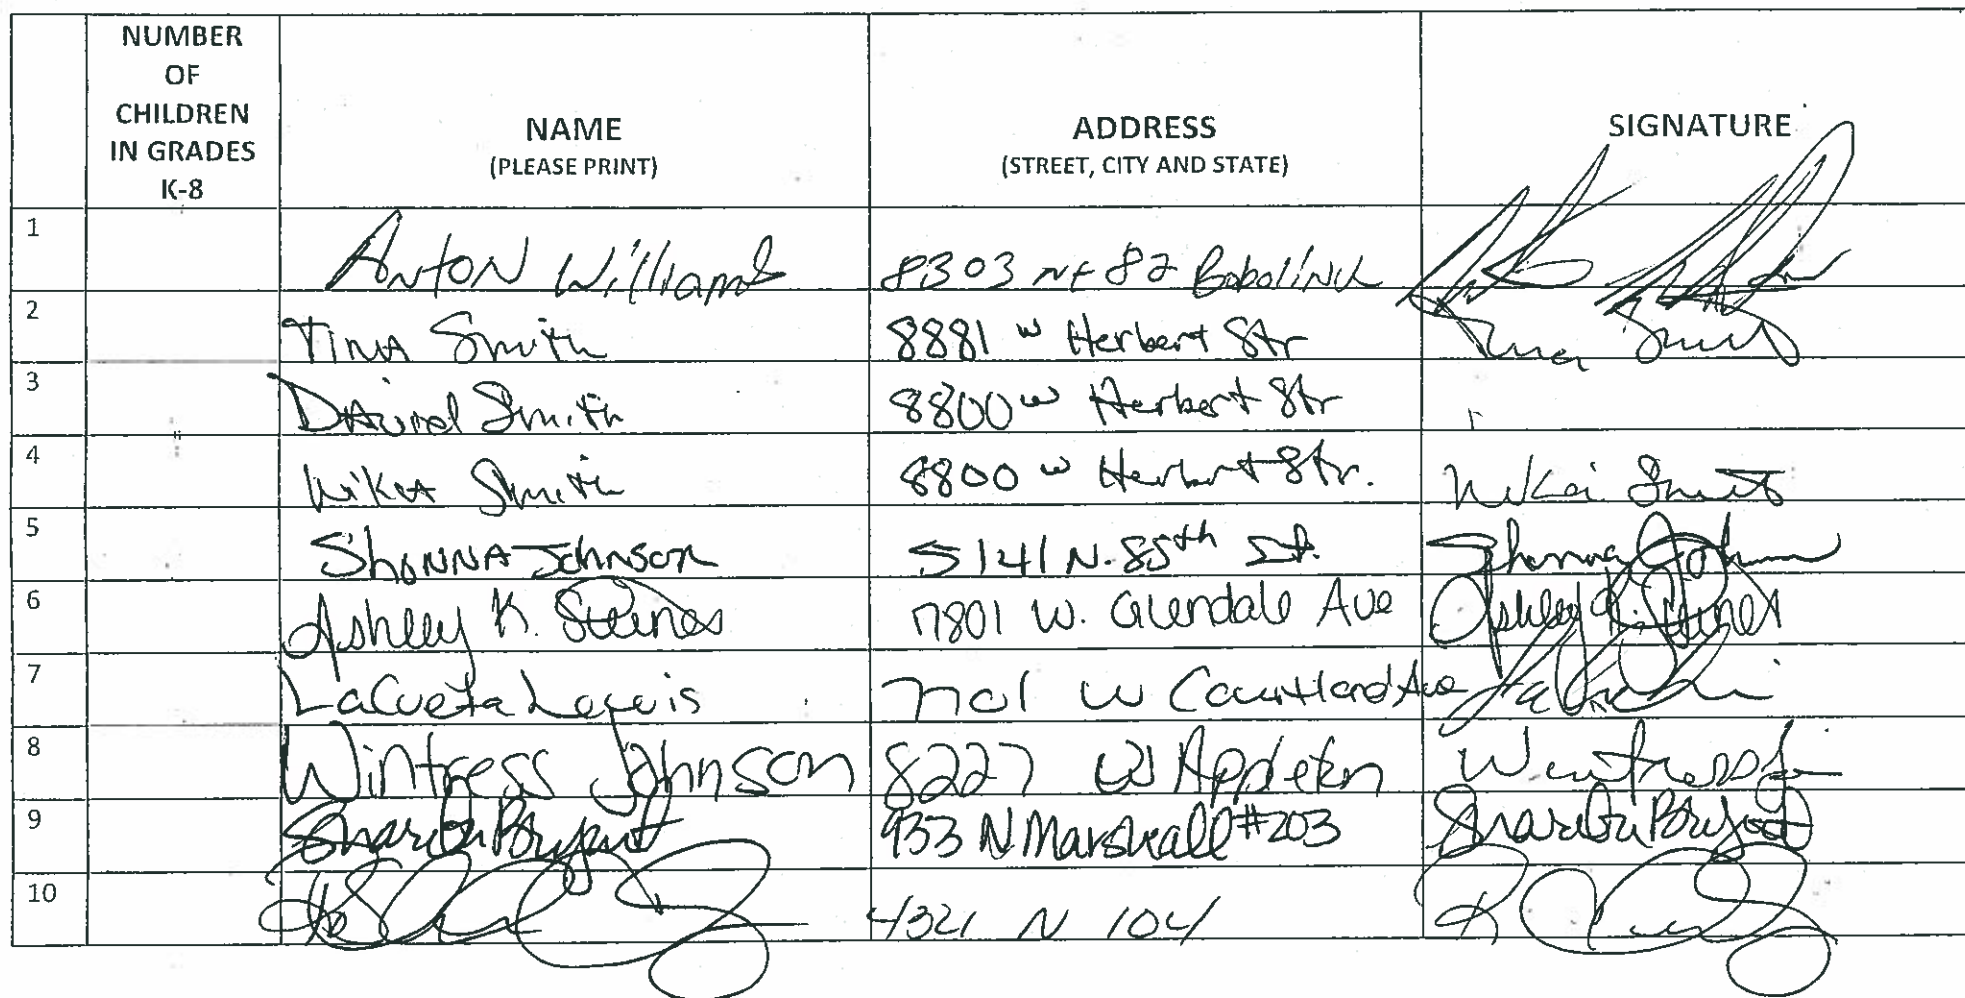 NUMBER
OF
CHILDREN
IN GRADES
K-8
NAME
(PLEASE PRINT)
ADDRESS
(STREET, CITY AND STATE)
SIGNATURE
1 Anton Williams 8303 82 Bobolink
2 Tina Smith 8881 W Herbert Str Tina Smith
3 David Smith 8800 W Herbert Str
4 Smith 8800 W Herbert Str. Smith
5 Shonna Johnson 5141 N. 85th St. Shonna Johnson
6 Ashley K. Steines 7801 W. Glendale Ave Ashley K. Steines
7 Lewis W Courtland Ave
8 Wintress Johnson 8227 W Appleton Wintress J
9 Bryant 933 N Marshall #203 Bryant
10 N 104